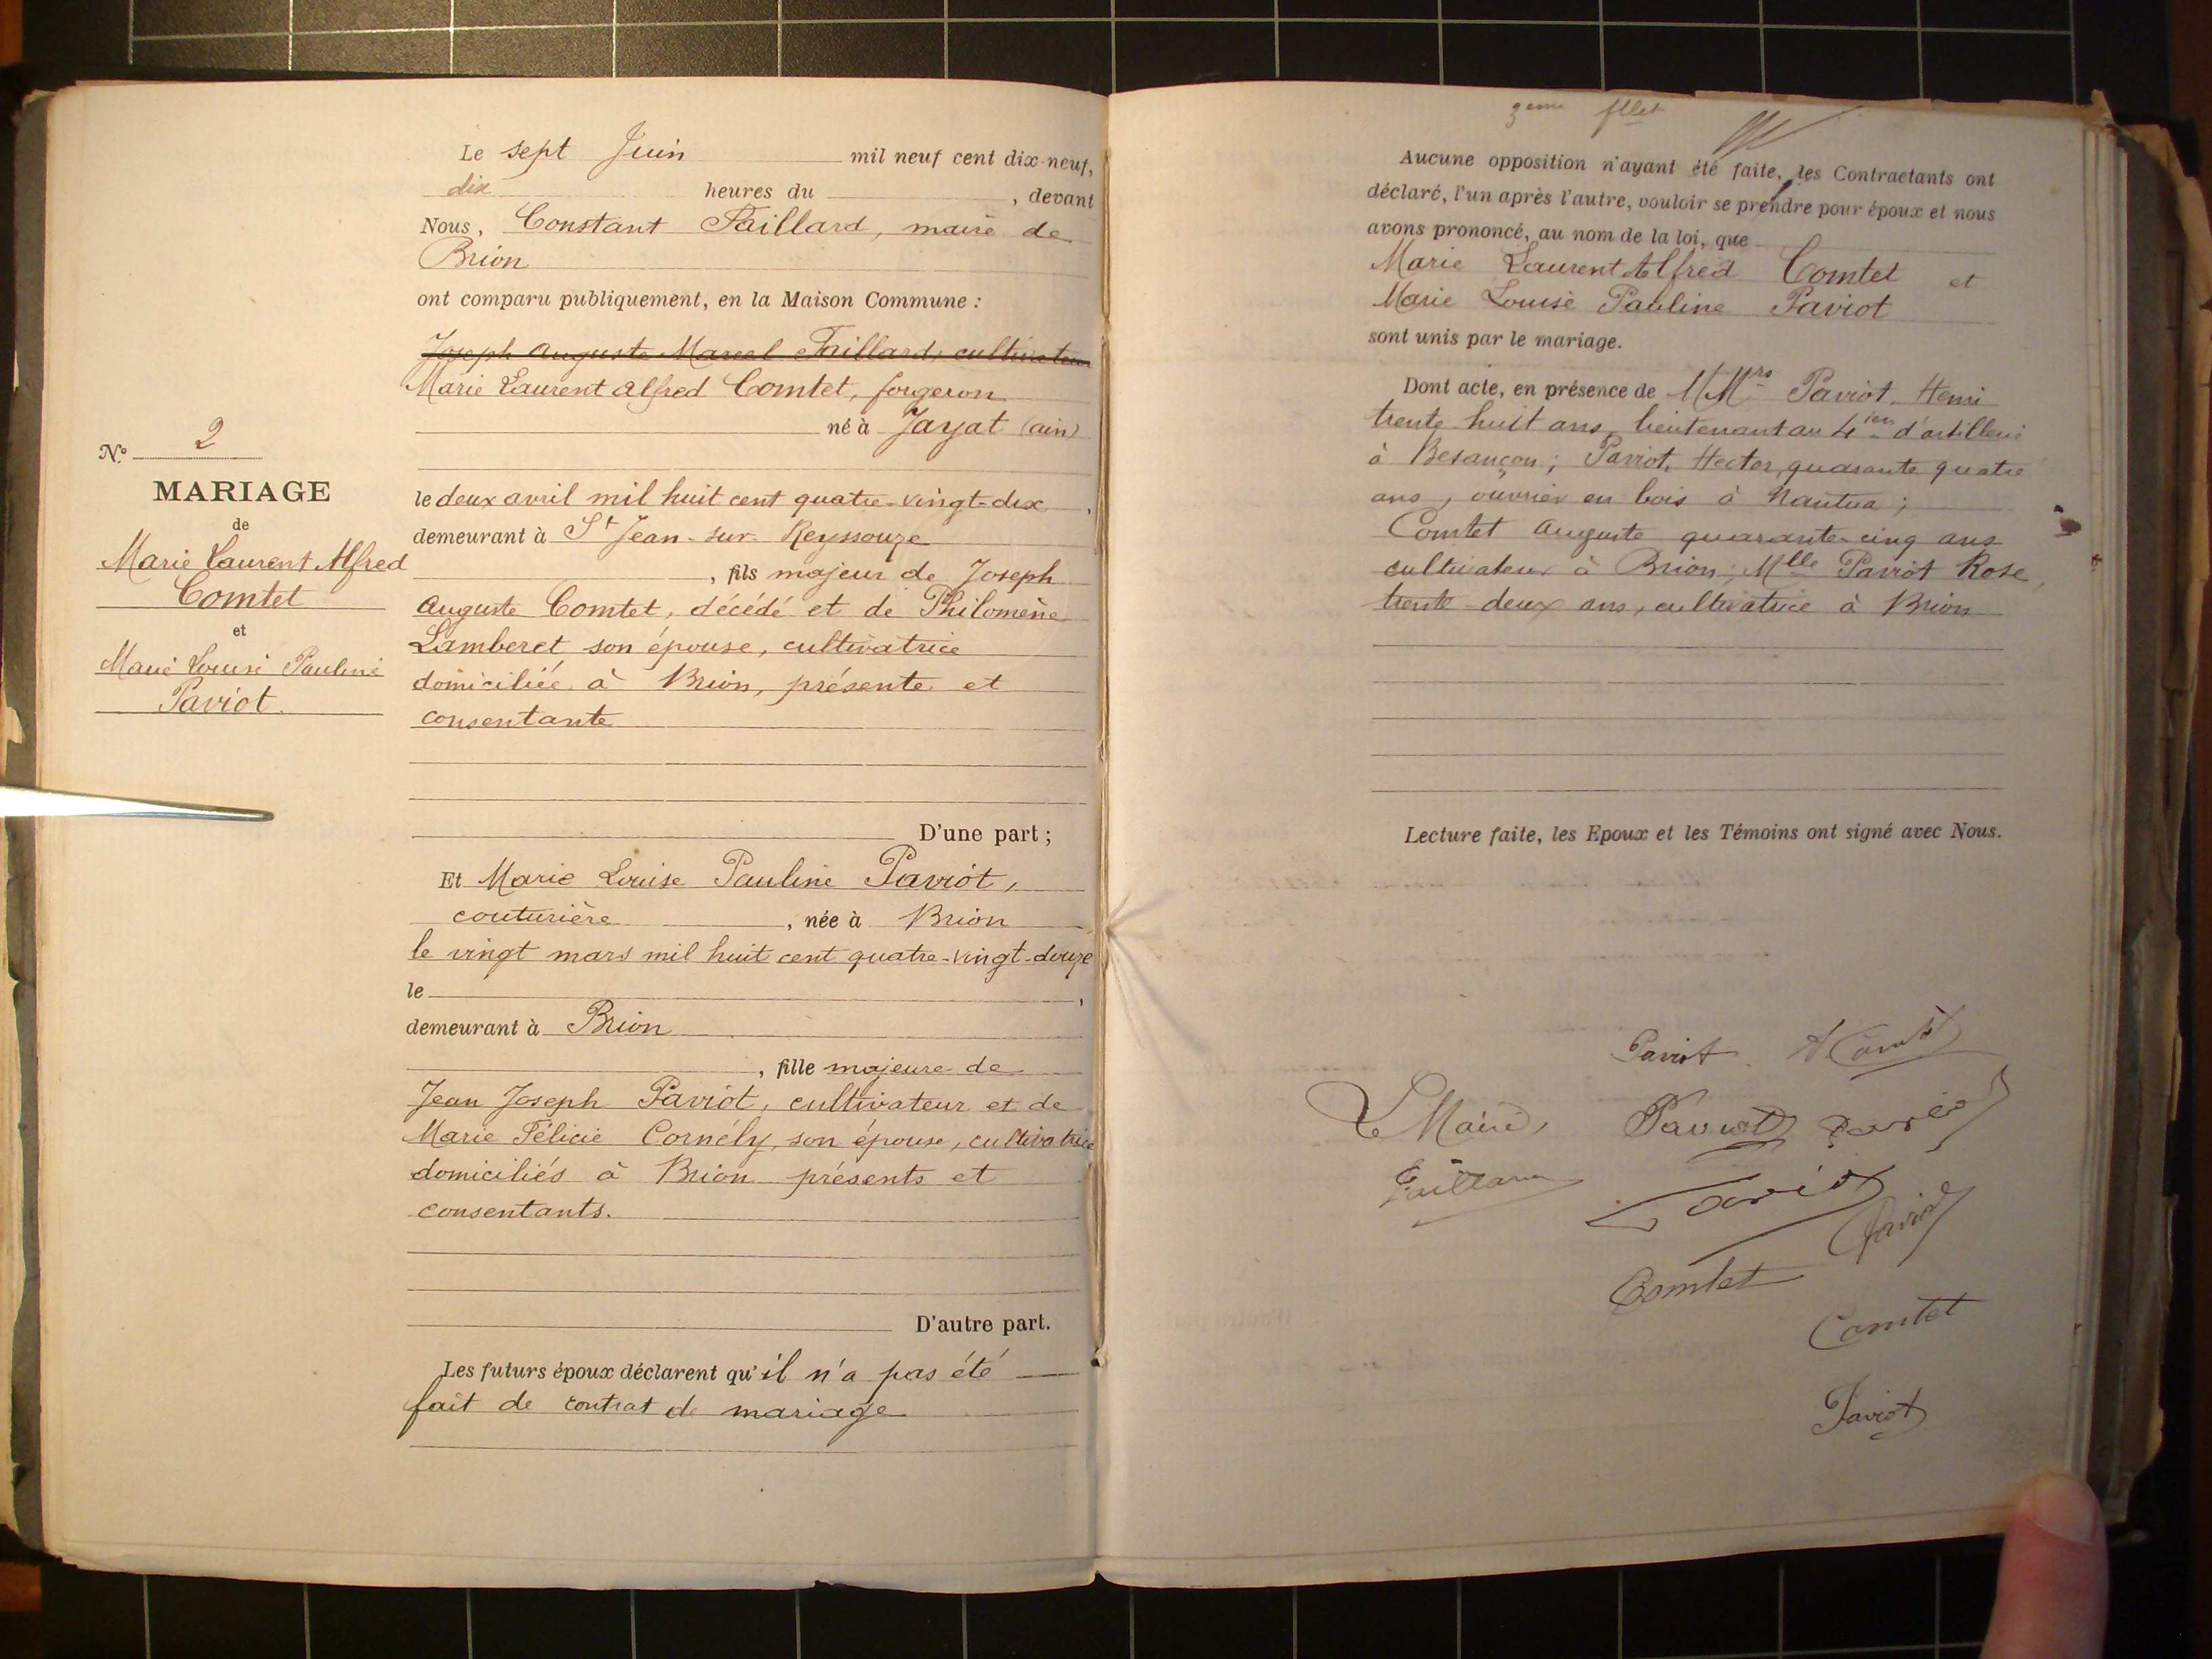 Le sept Juin mil neuf cent dix-neuf,
dix heures du , devant
Nous, Constant Taillard, maire de
Brion
ont comparu publiquement, en la Maison Commune :
Joseph Auguste Marcel Taillard, cultivateur
Marie Laurent Alfred Comtet, forgeron
né à Jayat (ain)
le deux avril mil huit cent quatre-vingt-dix ,
demeurant à St Jean-sur-Reyssouze
, fils majeur de Joseph
Auguste Comtet, décédé et de Philomène
Lamberet son épouse, cultivatrice
domiciliée à Brion, présente et
consentante
D'une part ;
Et Marie Louise Pauline Paviot,
couturière , née à Brion
le vingt mars mil huit cent quatre-vingt-douze
le ,
demeurant à Brion
, fille majeure de
Jean Joseph Paviot, cultivateur et de
Marie Félicie Cornély, son épouse, cultivatrice
domiciliés à Brion présents et
consentants.
D'autre part.
Les futurs époux déclarent qu'il n'a pas été
fait de contrat de mariage
N° 2
MARIAGE
de
Marie Laurent Alfred
Comtet
et
Marie Louise Pauline
Paviot
3eme fllet
Aucune opposition n'ayant été faite, les Contractants ont
déclaré, l'un après l'autre, vouloir se prendre pour époux et nous
avons prononcé, au nom de la loi, que
Marie Laurent Alfred Comtet et
Marie Louise Pauline Paviot
sont unis par le mariage.
Dont acte, en présence de MMrs Paviot, Henri
trente huit ans, lieutenant au 4ien d'artillerie
à Besançon ; Paviot, Hector, quarante quatre
ans, ouvrier en bois à Nantua ;
Comtet Auguste quarante-cinq ans
cultivateur à Brion ; Mlle Paviot Rose,
trente-deux ans, cultivatrice à Brion
Lecture faite, les Epoux et les Témoins ont signé avec Nous.
Paviot A Comtet
Le Maire, Paviot Paviot
Taillard Paviot
Paviot
Comtet
Comtet
Paviot